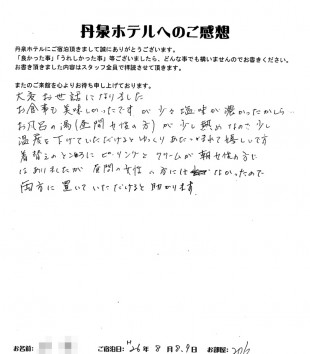 丹泉ホテルへのご感想
丹泉ホテルにご宿泊頂きまして誠にありがとうございます。
「良かった事」「うれしかった事」等ございましたら、どんな事でも構いませんのでお書きください。
お書き頂きました内容はスタッフ全員で拝読させて頂きます。
またのご来館を心よりお待ち申し上げております。
大変お世話になりました
お食事も美味しかったですが 少々塩味が濃かったかしら…
お風呂の湯(昼間女性の方)が少し熱めなので少し
温度を下げていただけるとゆっくりあたたまれて嬉しいです
着替えのところに ピーリングと クリームが 朝女性の方に
はありましたが 昼間の女性の方には なかったので
両方に置いていただけると助かります.
お名前:
ご宿泊日: H26年 8月 8.9日
お部屋: